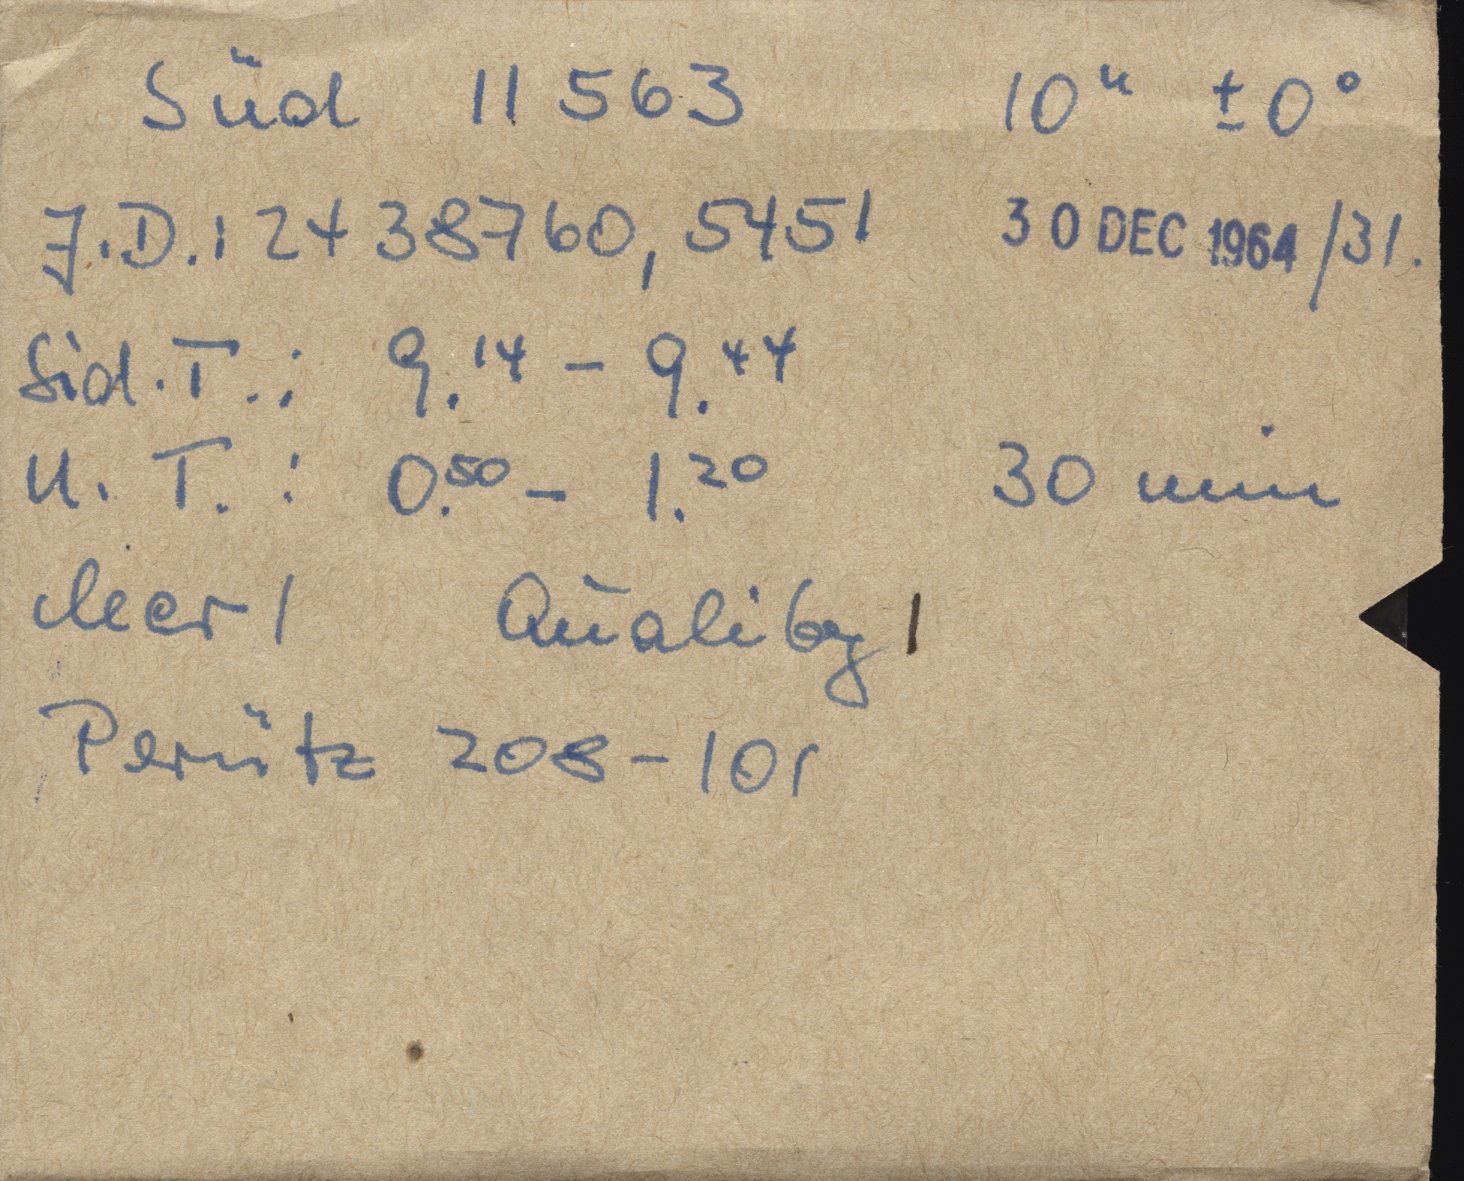 Süd 11563 10ʰ ±0°
J.D.: 2438760,5451 30 DEC 1964 /31.
Sid.T.: 9.¹⁴ – 9.⁴⁴
U. T.: 0.⁵⁰ – 1.²⁰ 30 min
Quality 1
Perutz 208-101